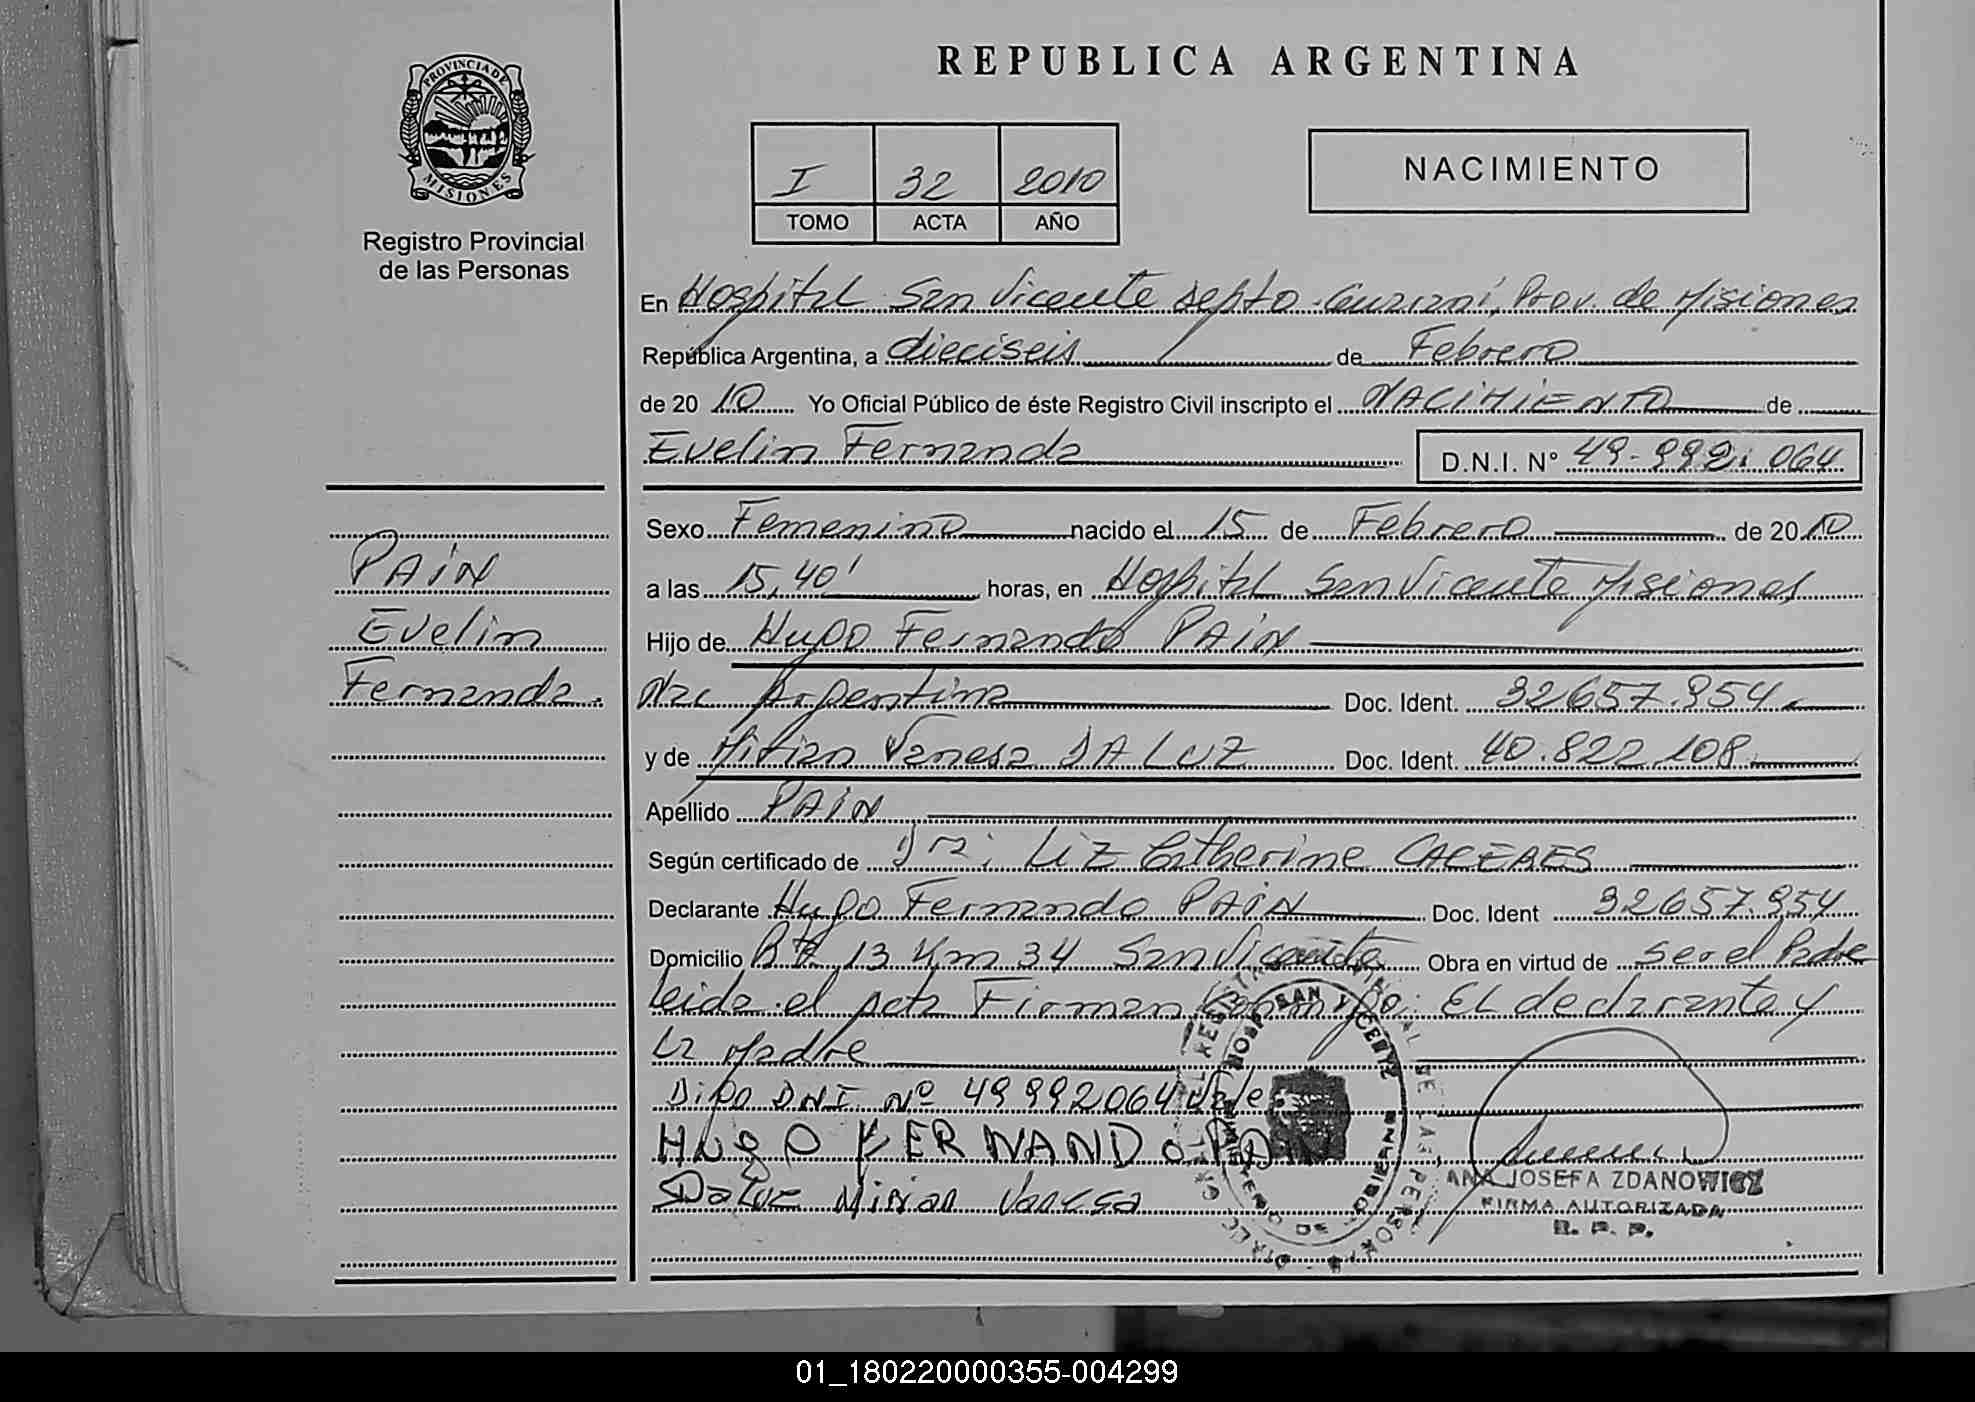 PROVINCIA DE
MISIONES
Registro Provincial
de las Personas
REPUBLICA ARGENTINA
I 32 2010
TOMO ACTA AÑO
NACIMIENTO
En Hospital San Vicente Depto. Guarani, Prov. de Misiones
República Argentina, a dieciseis de Febrero
de 2010 Yo Oficial Público de éste Registro Civil inscripto el NACIMIENTO de
Evelin Fernanda D.N.I. Nº 49.992.064
PAIN
Evelin
Fernanda.
Sexo Femenino nacido el 15 de Febrero de 2010
a las 15,40' horas, en Hospital San Vicente Misiones
Hijo de Hugo Fernando PAIN
Nac Argentina Doc. Ident. 32657.954
y de Mirian Vanesa DA LUZ Doc. Ident. 40.822.108
Apellido PAIN
Según certificado de Dra. Liz Catherine CACERES
Declarante Hugo Fernando PAIN Doc. Ident 32657.954
Domicilio Rta 13 Km 34 San Vicente Obra en virtud de ser el Padre
leida el acta Firman conmigo: EL declarante y
La Madre
Digo DNI Nº 49992064 Vale.
HUGO FERNANDO PAIN
Da Luz Mirian Vanesa
ANA JOSEFA ZDANOWICZ
FIRMA AUTORIZADA
R. P. P.
01_180220000355-004299